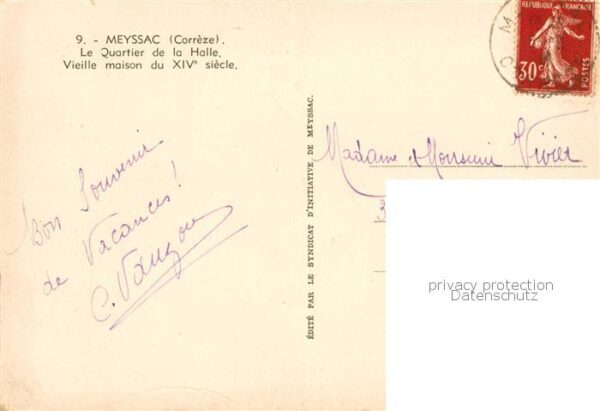 9. - MEYSSAC (Corrèze).
Le Quartier de la Halle.
Vieille maison du XIVe siècle.
Bon Souvenir
de Vacances!
C.
ÉDITÉ PAR LE SYNDICAT D'INITIATIVE DE MEYSSAC.
RÉPUBLIQUE FRANÇAISE
30c
POSTES
Madame & Monsieur Vivier
3
privacy protection
Datenschutz